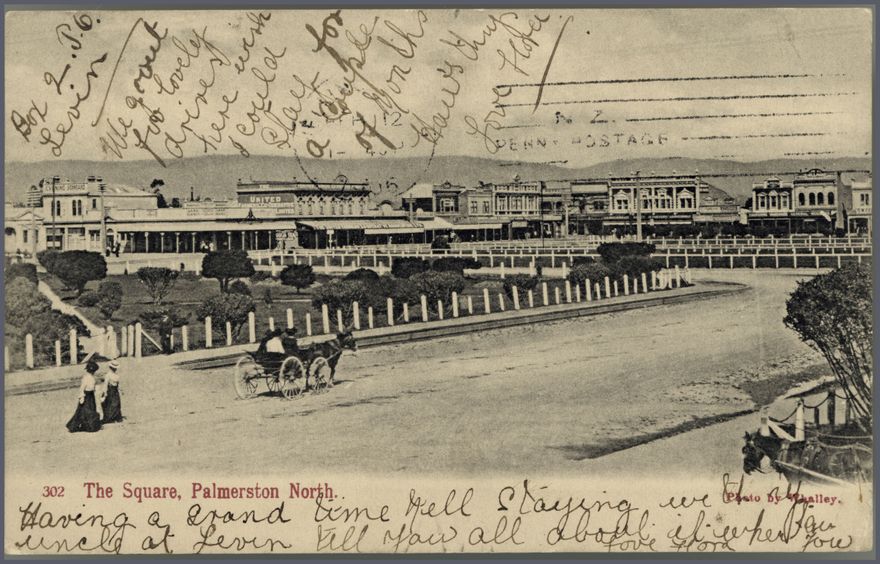 Box 2. P.O.
Levin
We go out
for lovely
drives
here wish
I could
stay
for
a couple
of Months
Love
N. Z.
PENNY POSTAGE
UNITED
302 The Square, Palmerston North.
Photo by Whalley.
Having a grand time Nell Staying with my
uncle at Levin tell you all about it when I
you